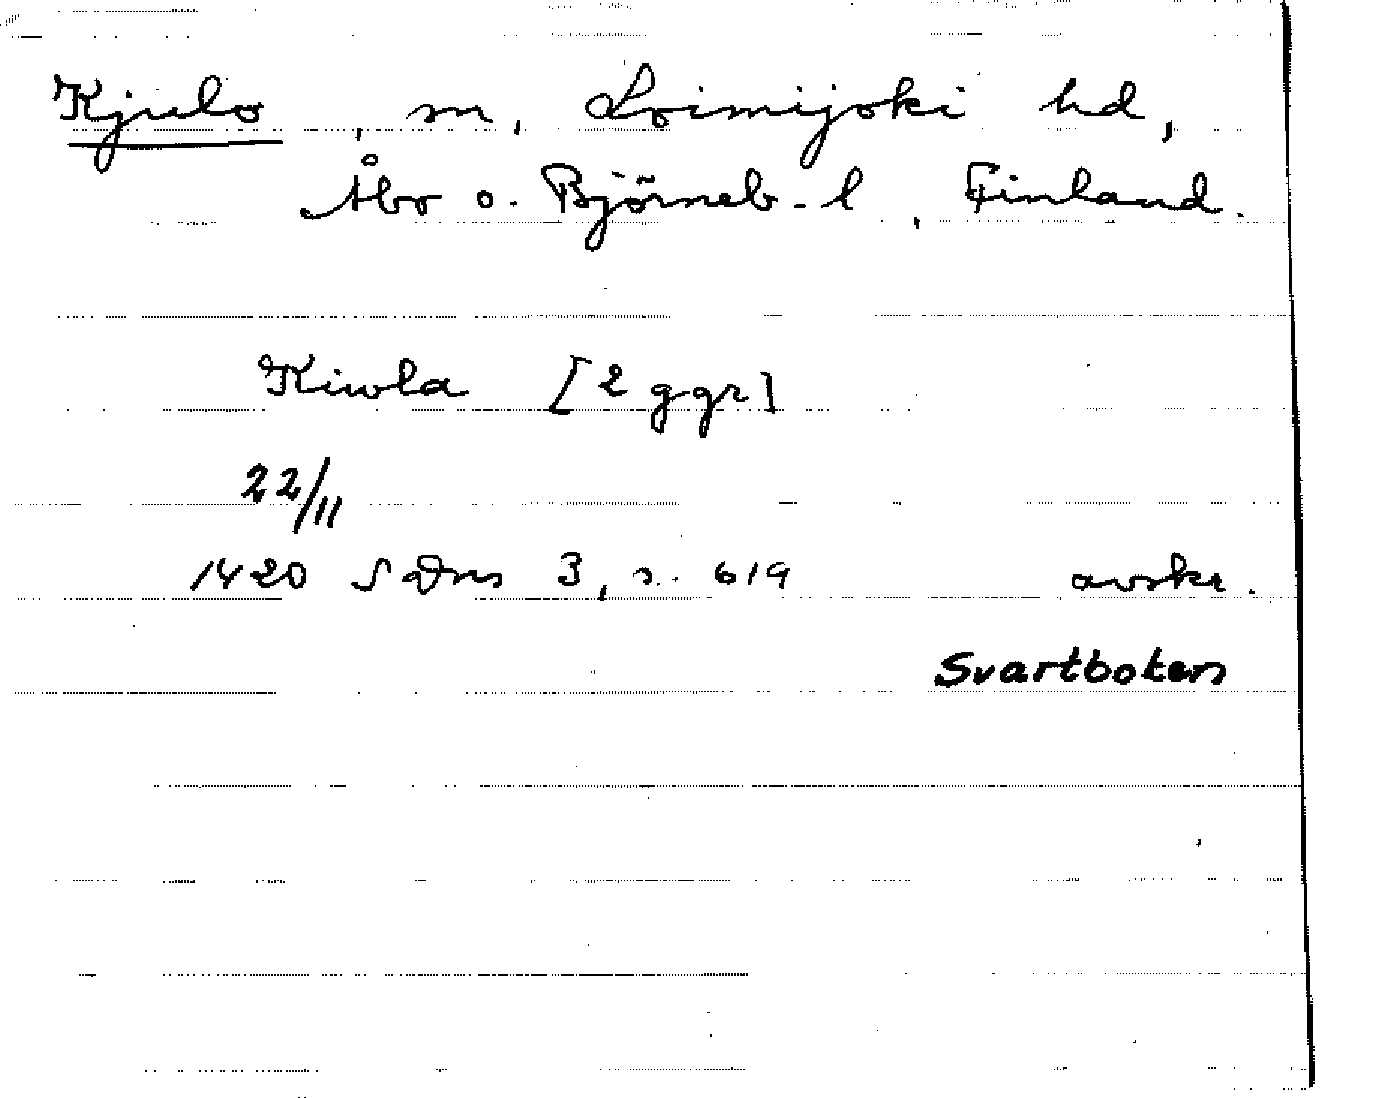 Kjulo, sn, Loimijoki hd,
Åbo o. Björneb-l, Finland.
Kiwla [2 ggr]
22/11
1420 SDns 3, s. 619 avskr.
Svartboken